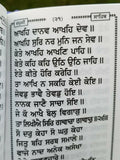 (੨੧)
ਆਖਹਿ ਦਾਨਵ ਆਖਹਿ ਦੇਵ ॥
ਆਖਹਿ ਸੁਰਿ ਨਰ ਮੁਨਿ ਜਨ ਸੇਵ ॥
ਕੇਤੇ ਆਖਹਿ ਆਖਣਿ ਪਾਹਿ ॥
ਕੇਤੇ ਕਹਿ ਕਹਿ ਉਠਿ ਉਠਿ ਜਾਹਿ ॥
ਏਤੇ ਕੀਤੇ ਹੋਰਿ ਕਰੇਹਿ ॥
ਤਾ ਆਖਿ ਨ ਸਕਹਿ ਕੇਈ ਕੇਇ ॥
ਜੇਵਡੁ ਭਾਵੈ ਤੇਵਡੁ ਹੋਇ ॥
ਨਾਨਕ ਜਾਣੈ ਸਾਚਾ ਸੋਇ ॥
ਜੇ ਕੋ ਆਖੈ ਬੋਲੁ ਵਿਗਾੜੁ ॥
ਤਾ ਲਿਖੀਐ ਸਿਰਿ ਗਾਵਾਰਾ ਗਾਵਾਰੁ ॥
ਸੋ ਦਰੁ ਕੇਹਾ ਸੋ ਘਰੁ ਕੇਹਾ